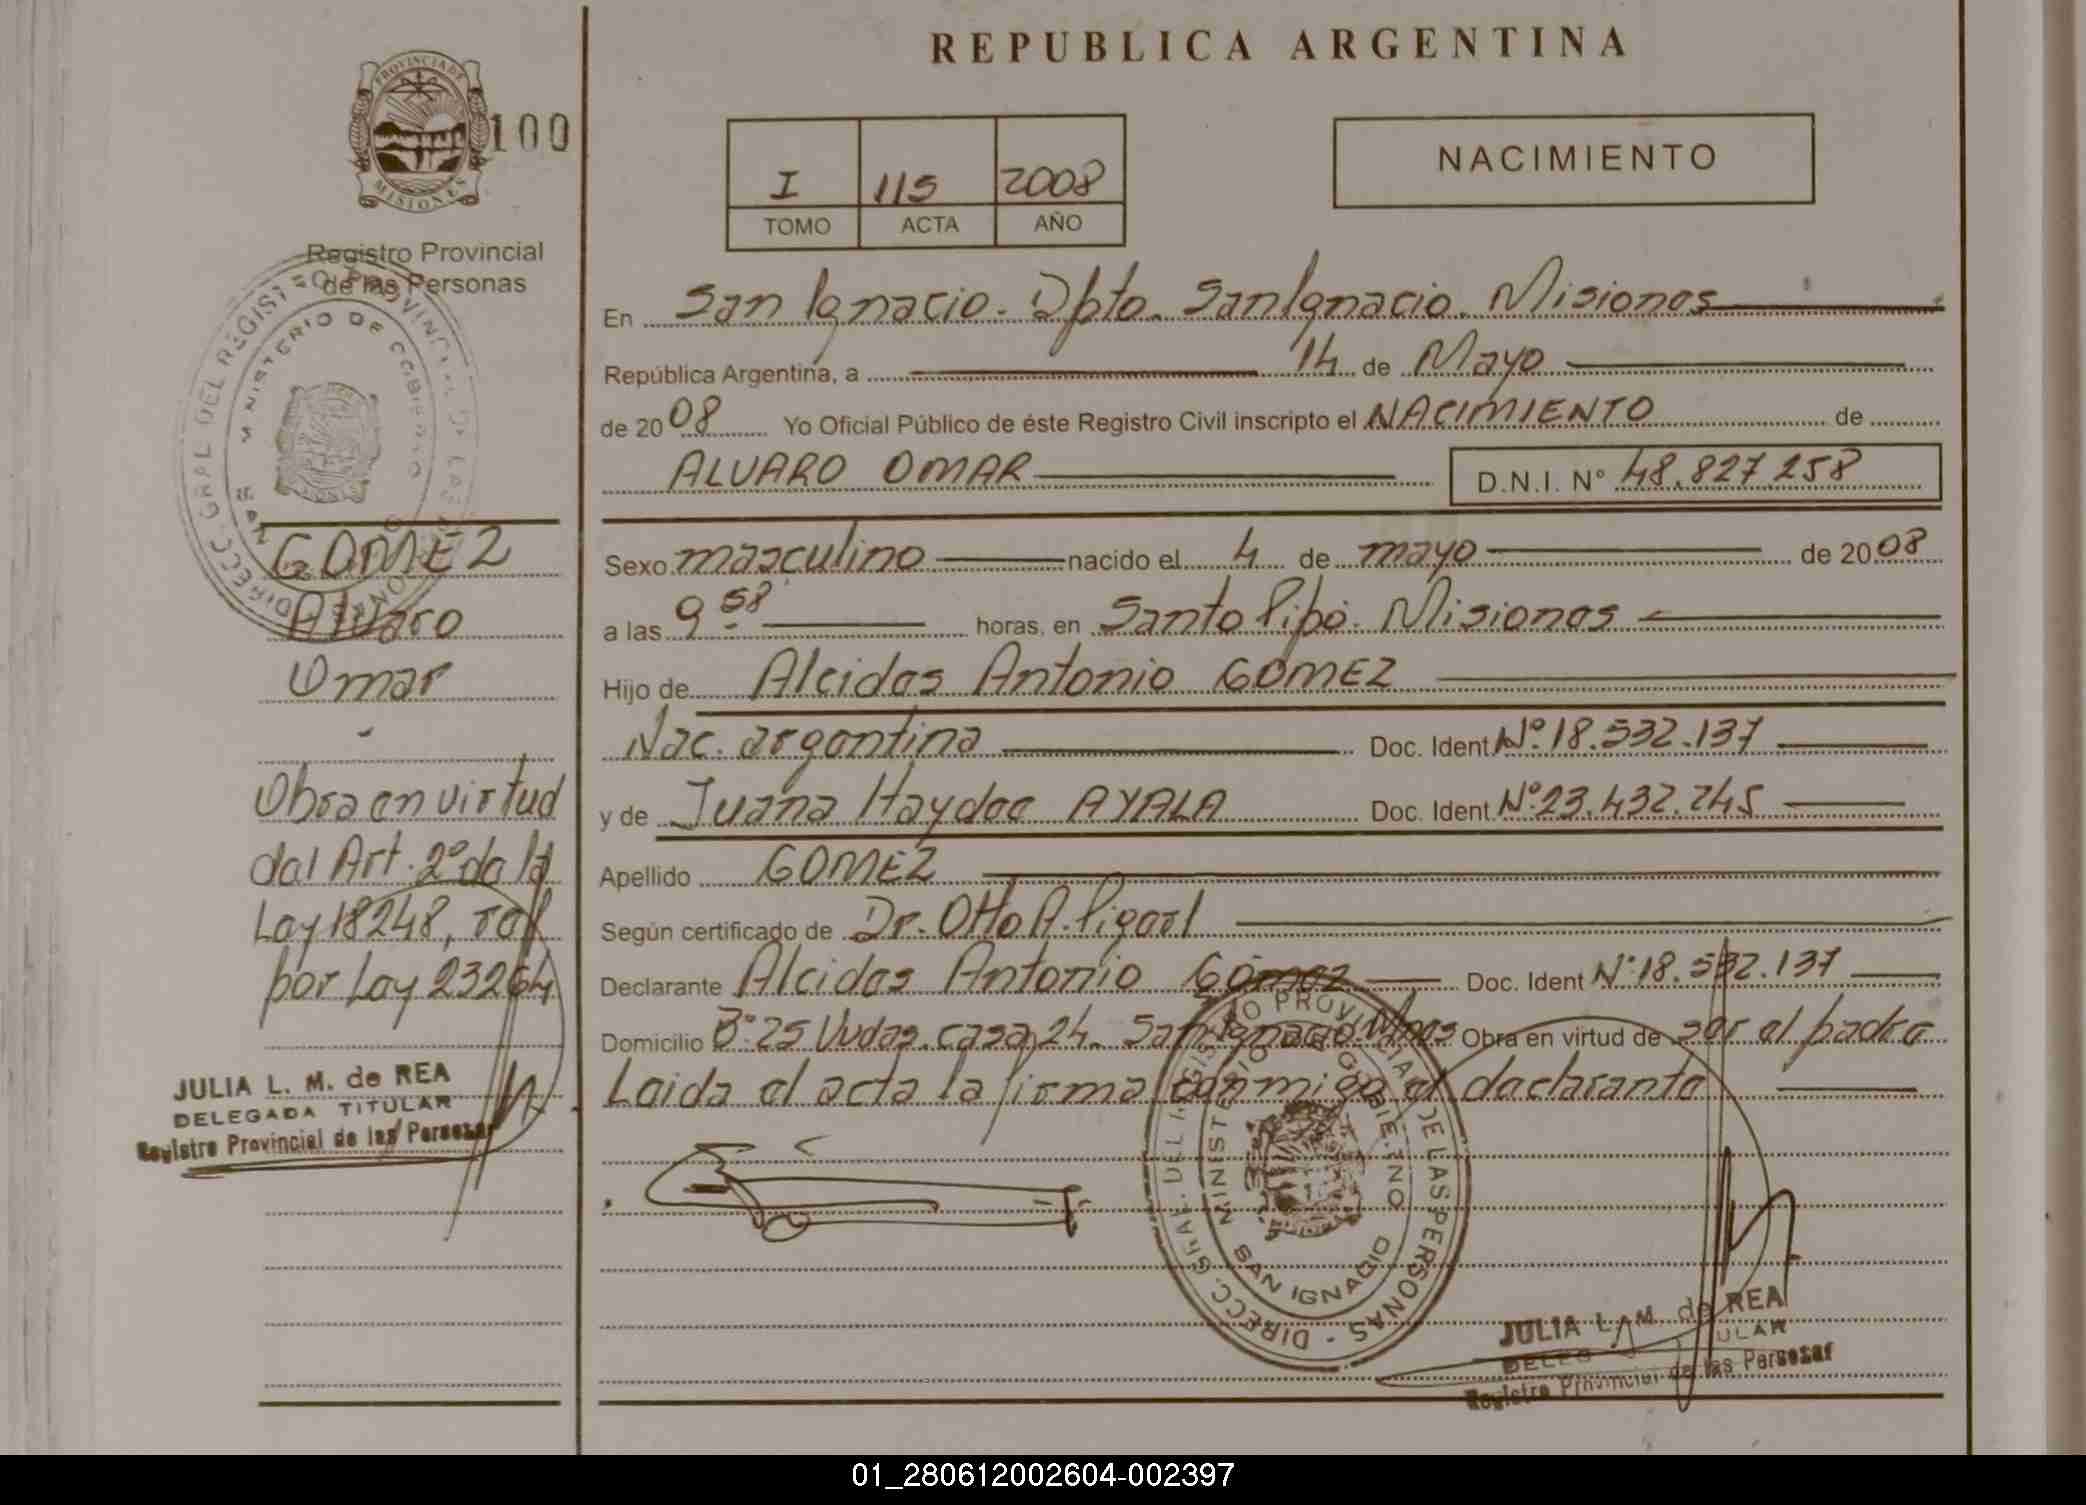 REPUBLICA ARGENTINA
PROVINCIA DE
MISIONES
100
Registro Provincial
de las Personas
I 115 2008
TOMO ACTA AÑO
NACIMIENTO
En San Ignacio. Dpto. San Ignacio. Misiones
República Argentina, a 14 de Mayo
de 2008 Yo Oficial Público de éste Registro Civil inscripto el NACIMIENTO de
ALVARO OMAR D.N.I. Nº 48.827.258
Sexo masculino nacido el 4 de mayo de 2008
a las 9 58 horas, en Santo Pipó. Misiones
Hijo de Alcides Antonio GOMEZ
Nac. argentina Doc. Ident Nº 18.532.137
y de Juana Haydee AYALA Doc. Ident. Nº 23.432.245
Apellido GOMEZ
Según certificado de Dr. Otto A.
Declarante Alcides Antonio Gómez Doc. Ident Nº 18.532.137
Domicilio Bº 25 Vvdas. casa 24. San Ignacio. Mnes Obra en virtud de ser el padre
Leida el acta la firma conmigo el declarante
GOMEZ
Alvaro
Omar
Obra en virtud
del Art. 2º de la
Ley 18248, ref
por Ley 23264
JULIA L. M. de REA
DELEGADA TITULAR
Registro Provincial de las Personas
DIRECC. GRAL. DEL REGISTRO PROVINCIAL DE LAS PERSONAS
MINISTERIO DE GOBIERNO
SAN IGNACIO
JULIA L. M. de REA
Registro Provincial de las Personas
01_280612002604-002397